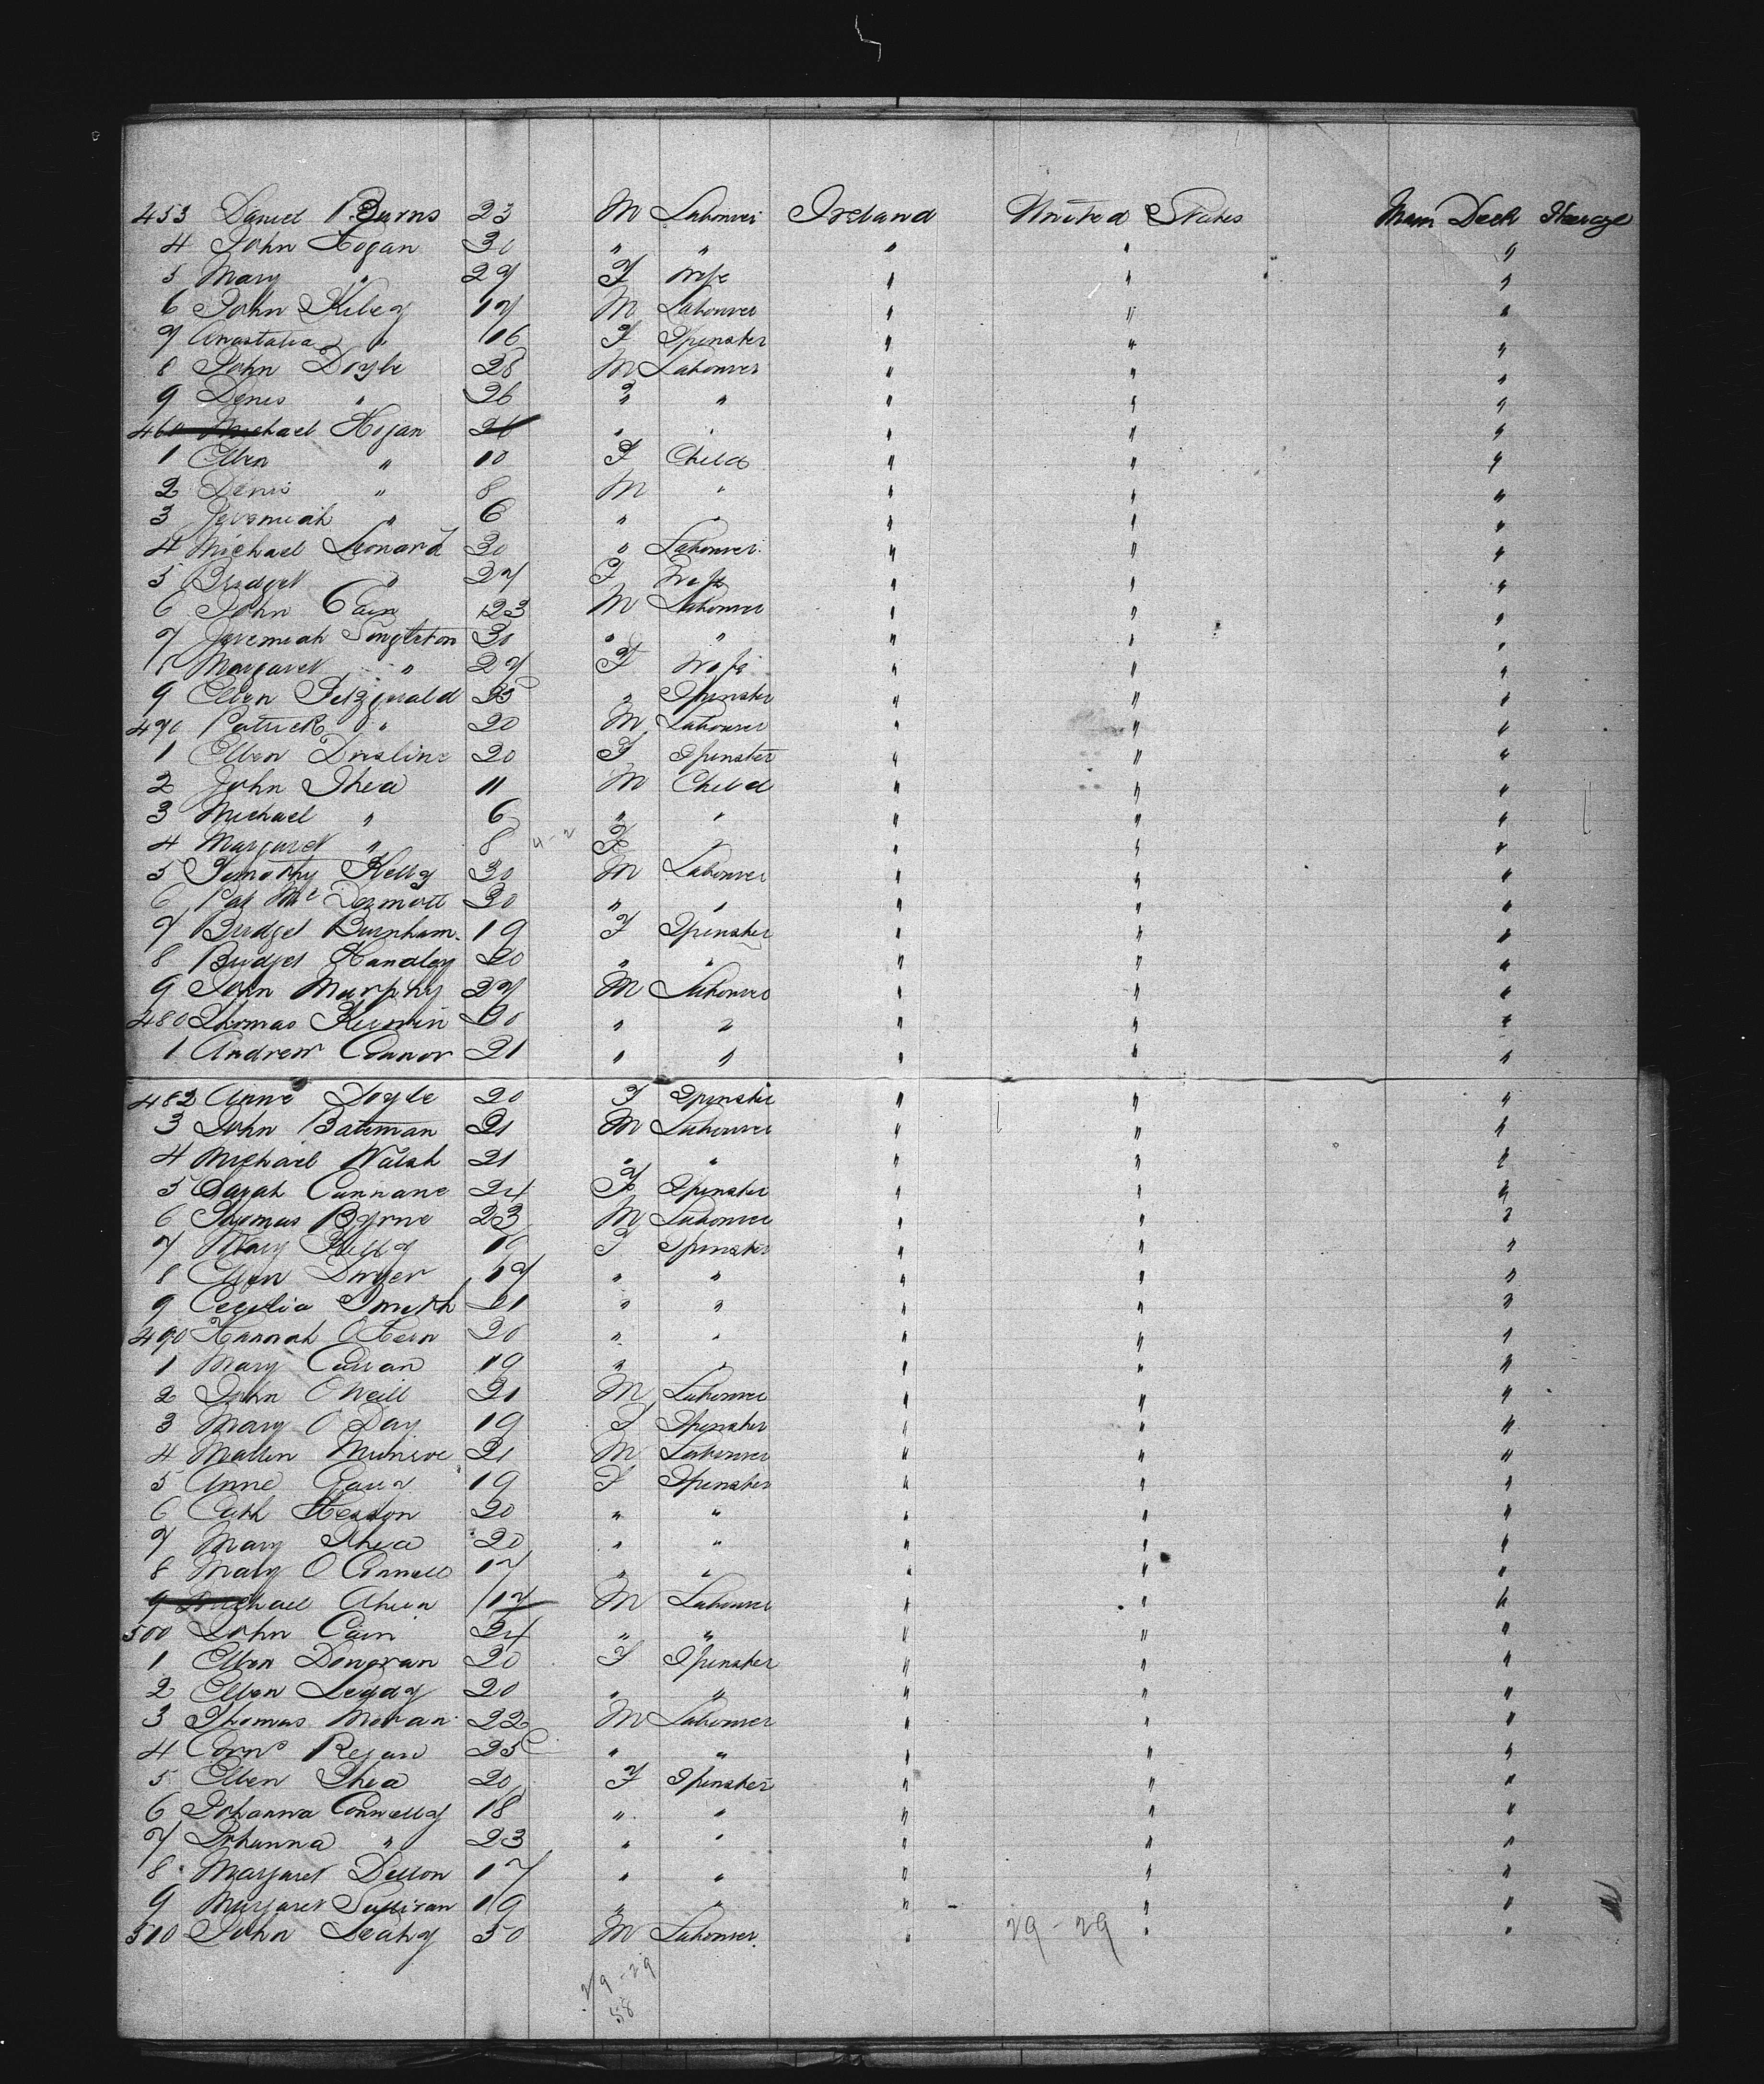 453 Daniel Burns 23 M Labourer Ireland United States Main Deck Steerage
4 John Hogan 30 " " " " "
5 Mary " 27 F Wife " " "
6 John Kiley 17 M Labourer " " "
7 Anastatia " 16 F Spinster " " "
8 John Doyle 28 M Labourer " " "
9 Denis " 26 " " " " "
460 Michael Hogan 26 " " " " "
1 Ellen " 10 F Child " " "
2 Denis " 8 M " " " "
3 Jeremiah " 6 " " " " "
4 Michael Leonard 30 " Labourer " " "
5 Bridget " 27 F Wife " " "
6 John Cain 23 M Labourer " " "
7 Jeremiah Singleton 30 " " " " "
8 Margaret " 27 F Wife " " "
9 Ellen Fitzgerald 35 " Spinster " " "
470 Patrick " 20 M Labourer " " "
1 Ellen Drisline 20 F Spinster " " "
2 John Shea 11 M Child " " "
3 Michael " 6 " " " " "
4 Margaret " 8 4-2 F " " " "
5 Timothy Kelly 30 M Labourer " " "
6 Pat Mc Dermott 30 " " " " "
7 Bridget Burnham 19 F Spinster " " "
8 Bridget Handley 20 " " " " "
9 John Murphy 27 M Labourer " " "
480 Thomas Kerwin 30 " " " " "
1 Andrew Connor 21 " " " " "
482 Anne Doyle 20 F Spinster " " "
3 John Bateman 21 M Labourer " " "
4 Michael Walsh 21 " " " " "
5 Sarah Cunnane 24 F Spinster " " "
6 Thomas Byrne 23 M Labourer " " "
7 Mary Kelly 19 F Spinster " " "
8 Ellen Dwyer 17 " " " " "
9 Cecelia Smith 21 " " " " "
490 Hannah OHern 20 " " " " "
1 Mary Curran 19 " " " " "
2 John ONeill 21 M Labourer " " "
3 Mary O Day 19 F Spinster " " "
4 Munroe 21 M Labourer " " "
5 Anne 19 F Spinster " " "
6 Cath 20 " " " " "
7 Mary Shea 20 " " " " "
8 Mary O Connell 17 " " " " "
9 Michael Ahern 17 M Labourer " " "
500 John Cain 24 " " " " "
1 Ellen Donovan 20 F Spinster " " "
2 Ellen Leddy 20 " " " " "
3 Thomas Moran 22 M Labourer " " "
4 Corns Regan 25 " " " " "
5 Ellen Shea 20 F Spinster " " "
6 Johanna Connelly 18 " " " " "
7 Johanna " 23 " " " " "
8 Margaret Dillon 17 " " " " "
9 Margaret Sullivan 19 " " " " "
510 John Leahy 50 M Labourer " " "
29-29
29-29
58